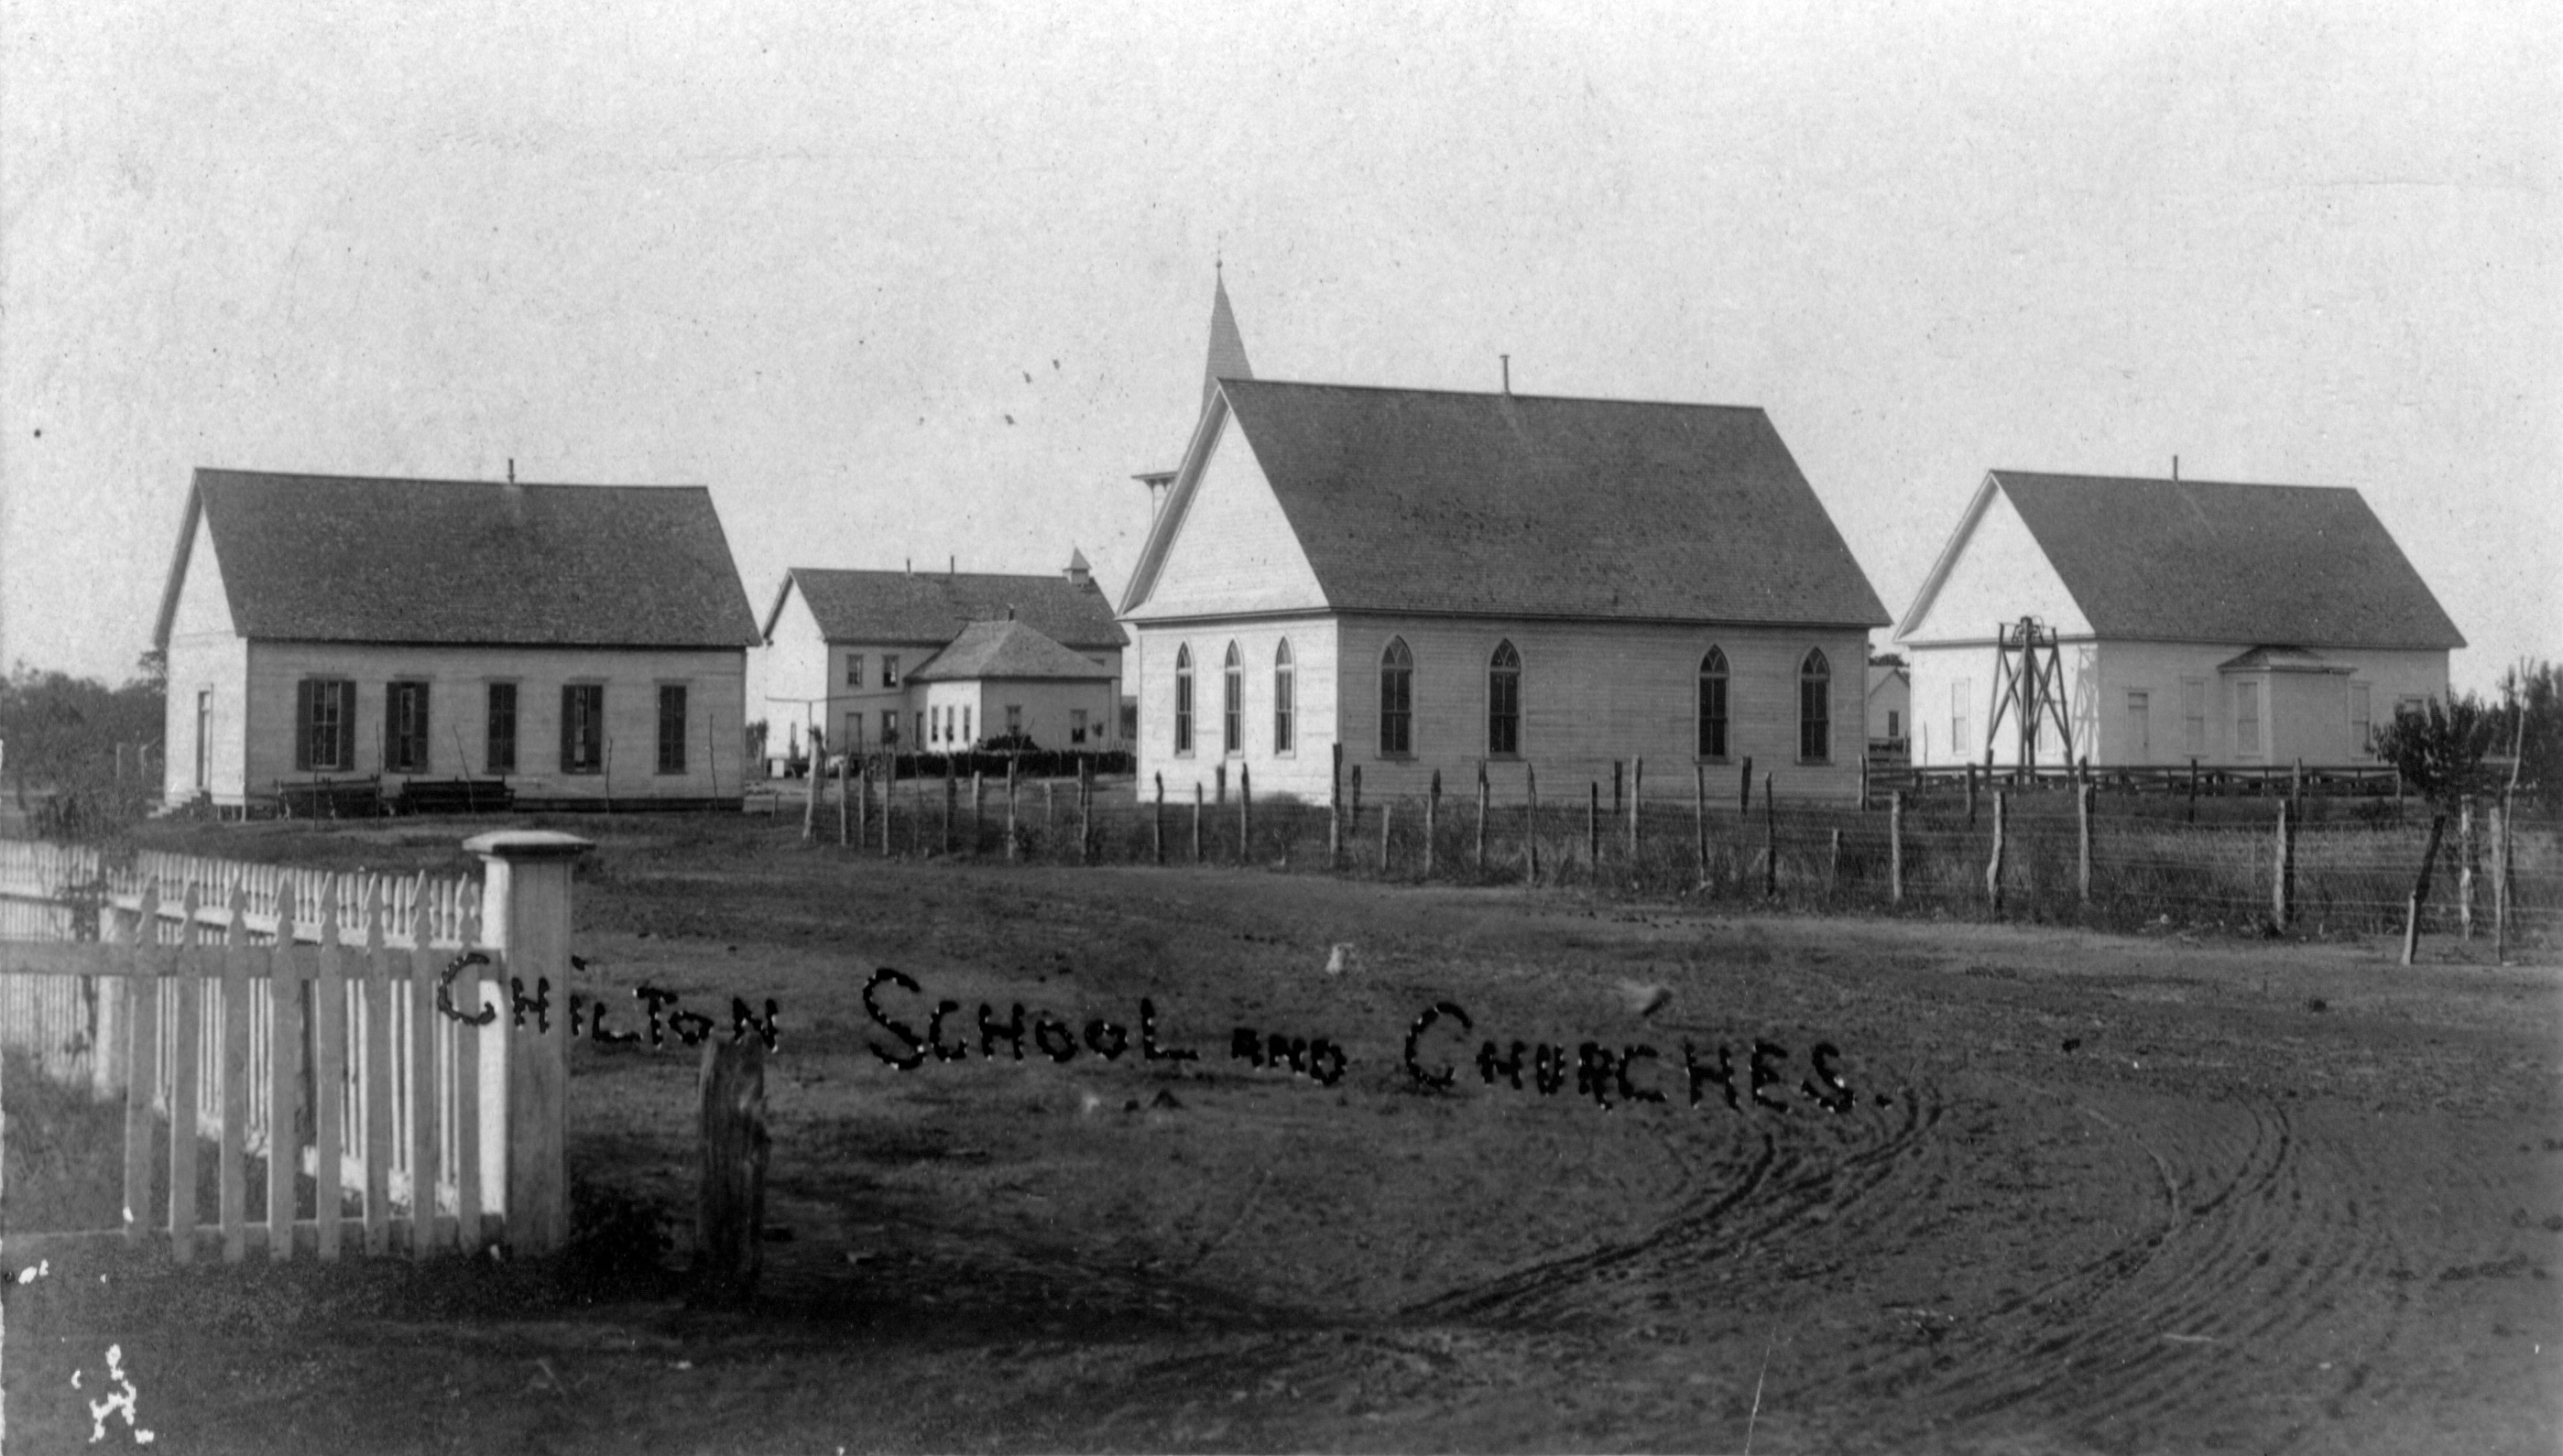 CHiLTON SCHOOL AND CHURCHES.